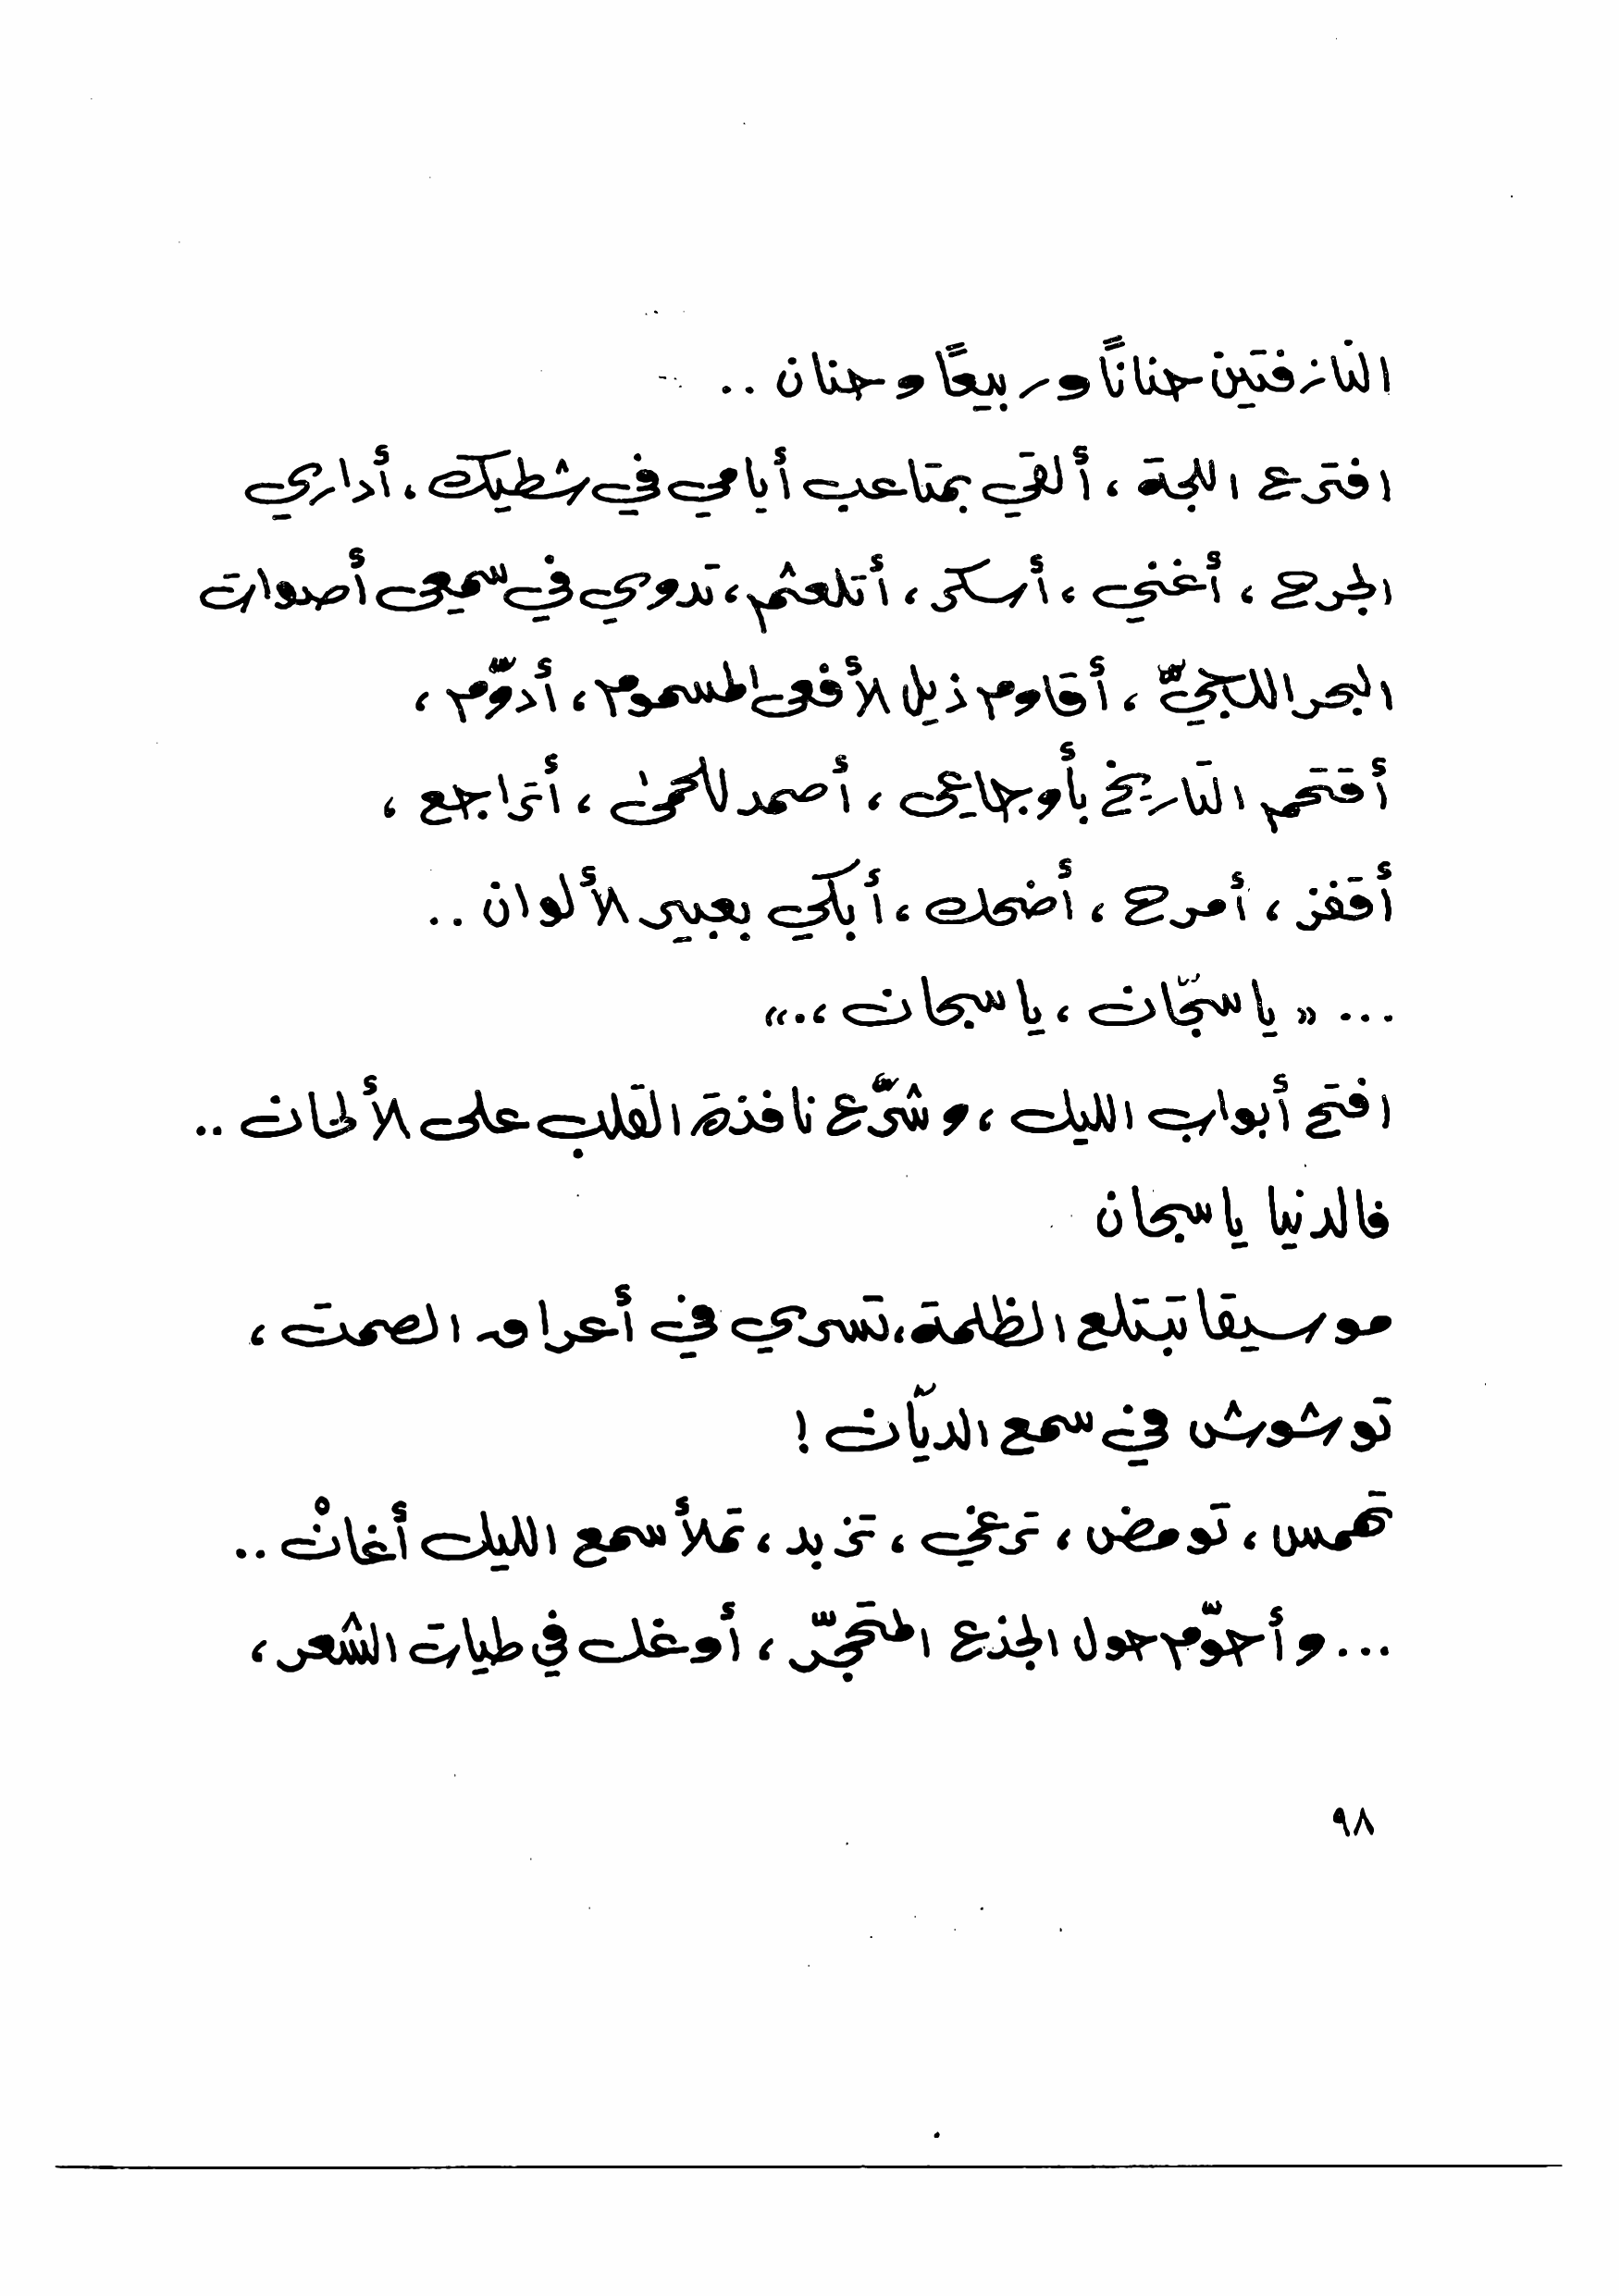 النازفتين حنانًا وربيعًا وحنان ..
افترع اللجة ، ألقي بمتاعب أيامي في شطيك ، أداري
الجرح ، أغني ، أسكر ، أتلعثم ، تدوي في سمعي أصوات
البحر اللجّيّ ، أقاوم ذيل الأفعى المسموم ، أدوّم ،
أقتحم التاريخ بأوجاعي ، أصمد للحمىٰ ، أتراجع ،
أقفز ، أمرح ، أضحك ، أبكي بعبير الألوان ..
... « يا سجّان ، يا سجان ،. »
افتح أبواب الليل ، وشرّع نافذة القلب على الألحان ..
فالدنيا يا سجان
موسيقا تبتلع الظلمة ، تسري في أعراق الصمت ،
توشوش في سمع الديّان !
تهمس ، تومض ، ترغي ، تزبد ، تملأ سمع الليل أغانْ ..
... وأحوّم حول الجذع المتحجّر ، أوغل في طيات الشعر ،
٩٨